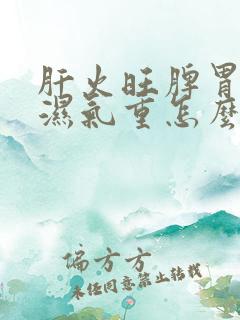 肝火旺脾胃
濕氣重怎麼
偏方方
未经同意禁止转载